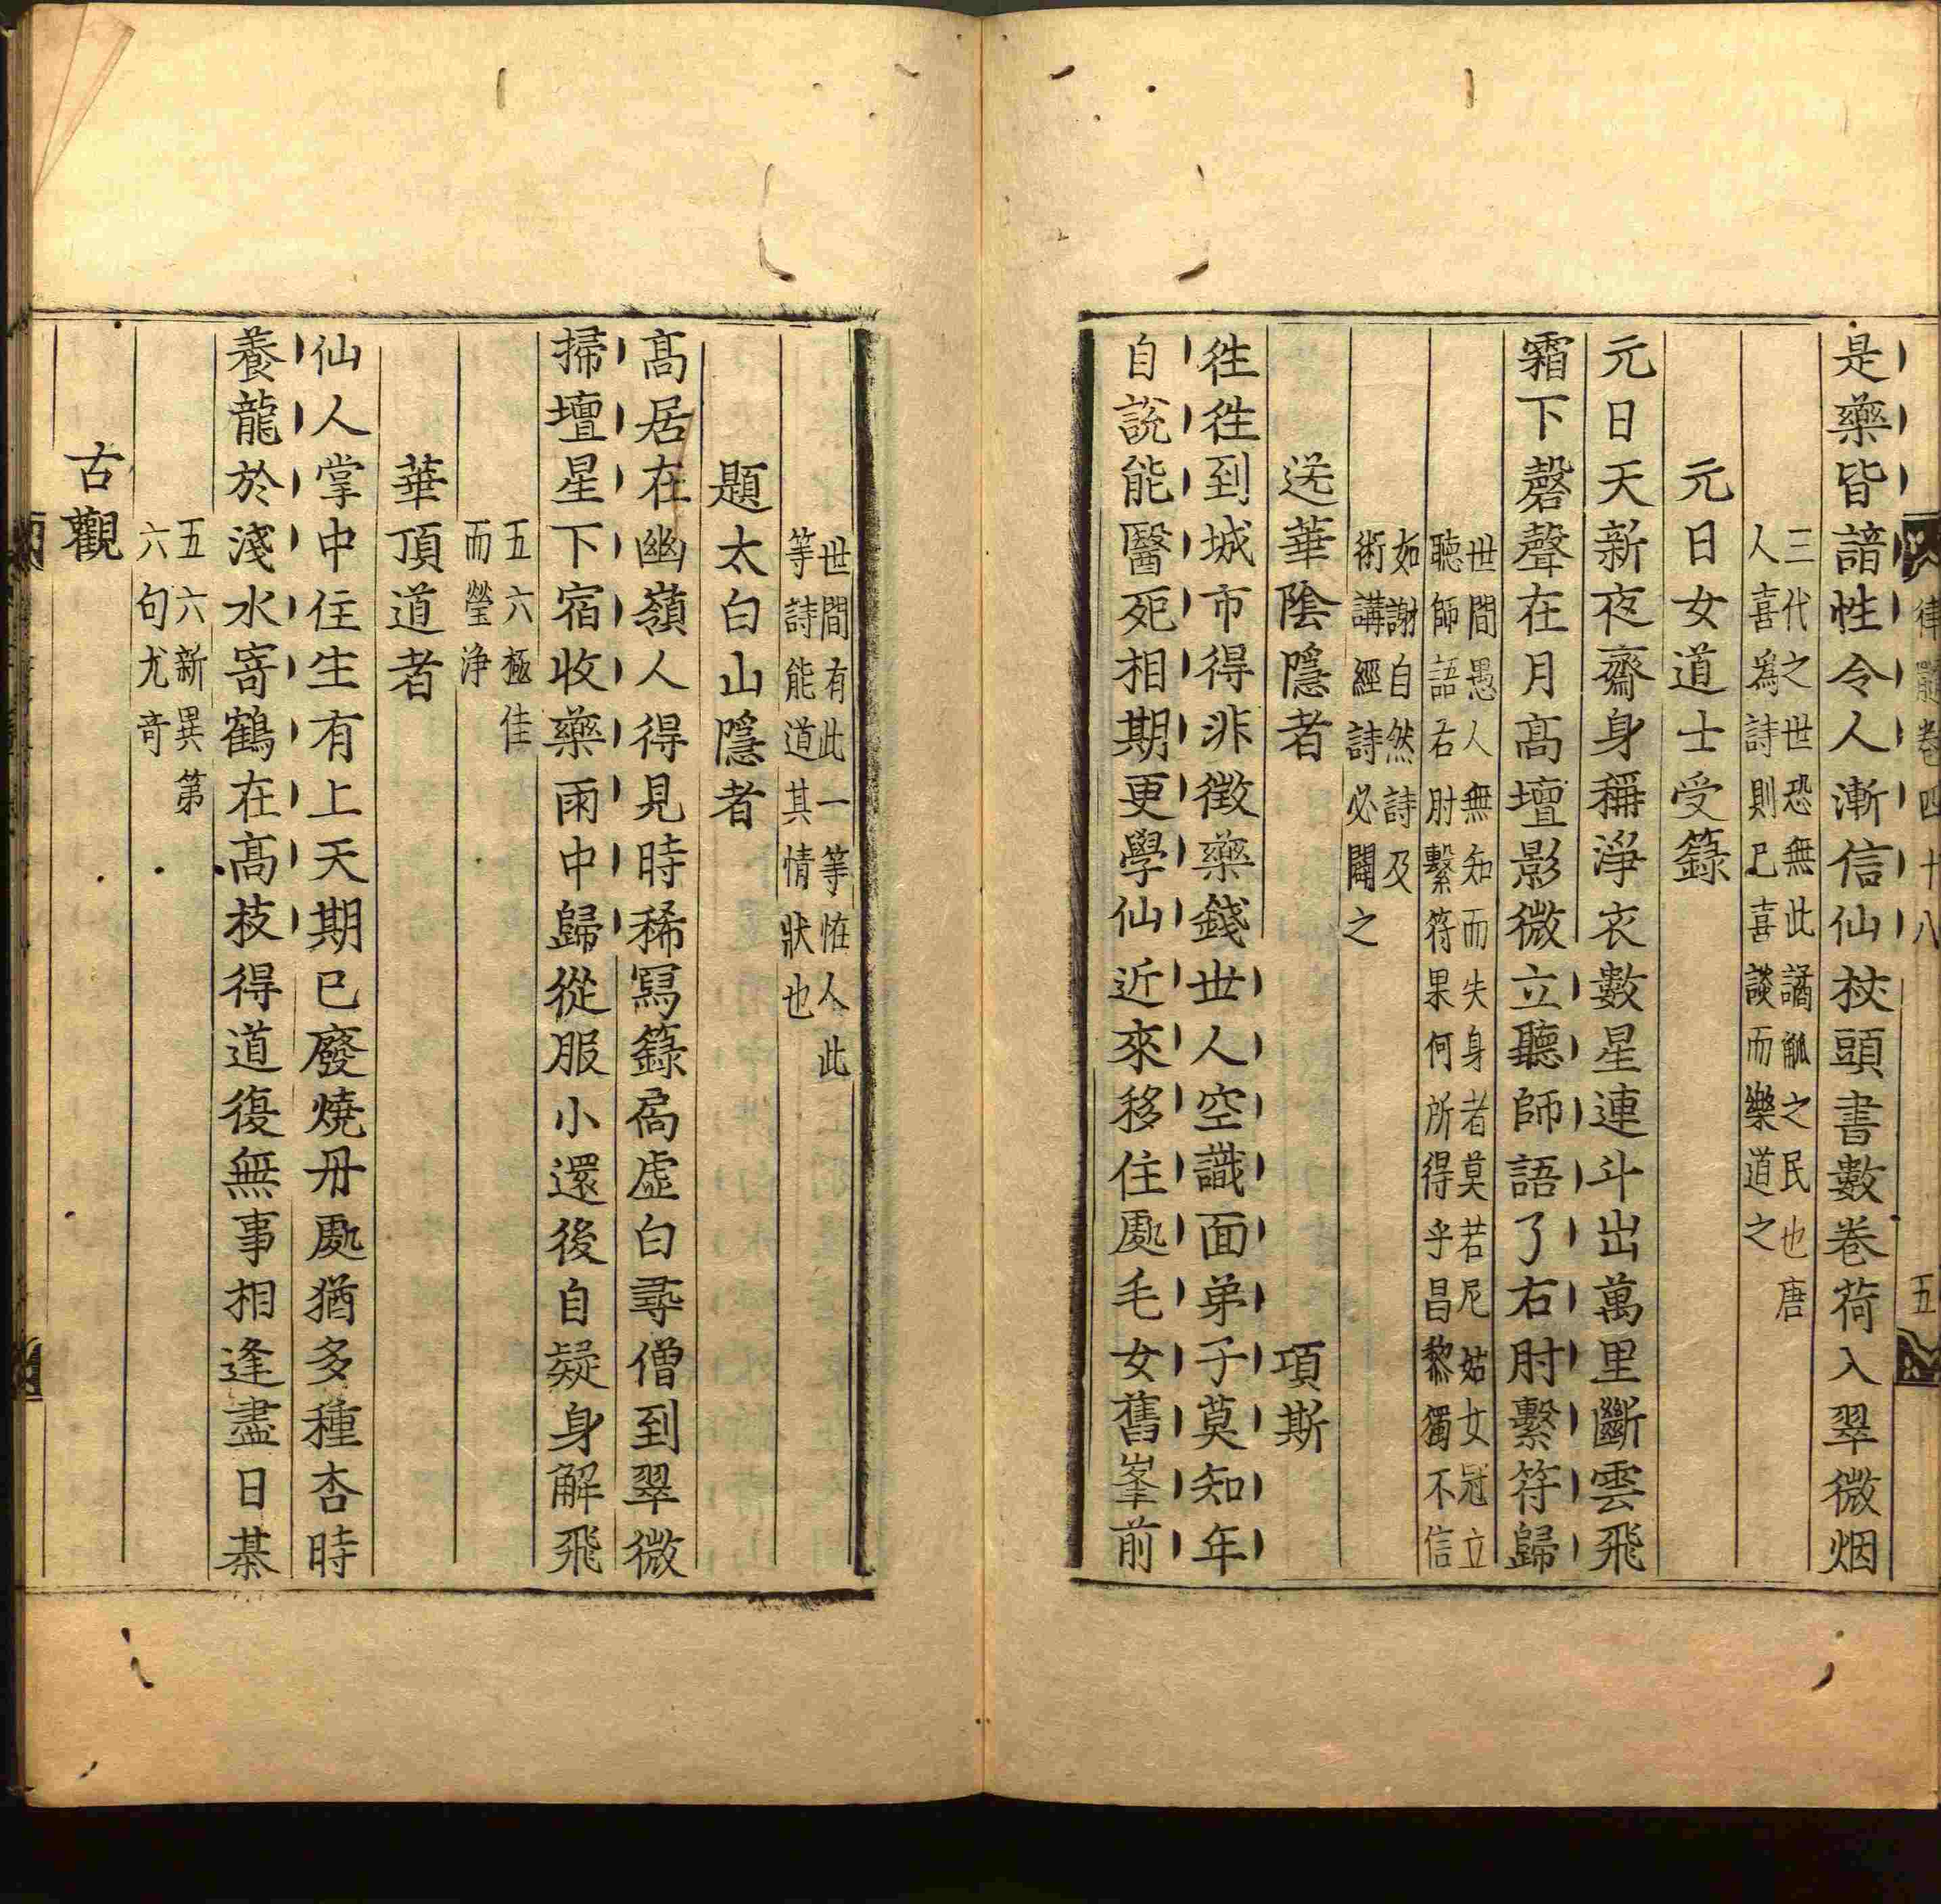 律髓卷四十八 五
是藥皆諳性令人漸信仙杖頭書數卷荷入翠微烟
三代之世恐無此譎觚之民也唐
人喜爲詩則巳喜談而樂道之
元日女道士受籙
元日天新夜齋身稱淨衣數星連斗出萬里斷雲飛
霜下磬聲在月高壇影微立聽師語了右肘繫符歸
世間愚人無知而失身者莫若尼姑女冠立
聽師語右肘繫符果何所得乎昌黎獨不信
如謝自然詩及
術講經詩必闢之
送華陰隱者 項斯
徃徃到城市得非徵藥錢世人空識面弟子莫知年
自說能醫死相期更學仙近來移住處毛女舊峯前
世間有此一等恠人此
等詩能道其情狀也
題太白山隱者
高居在幽嶺人得見時稀寫籙扄虛白尋僧到翠微
掃壇星下宿收藥雨中歸從服小還後自疑身解飛
五六極佳
而瑩淨
華頂道者
仙人掌中住生有上天期已廢燒丹處猶多種杏時
養龍於淺水寄鶴在高枝得道復無事相逢盡日棊
五六新異第
六句尤奇
古觀